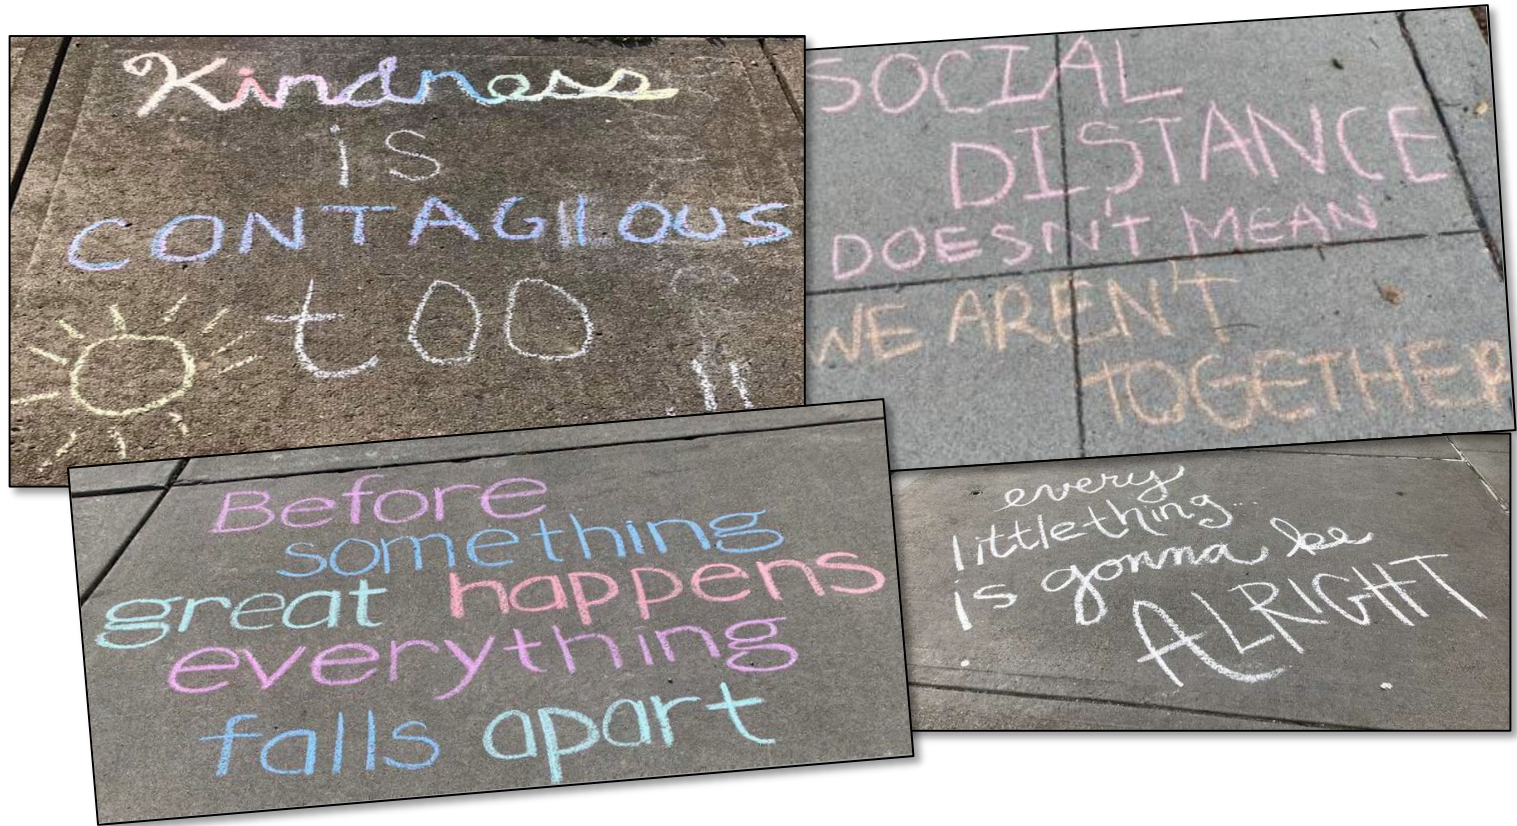 Kindness
is
CONTAGIOUS
too
SOCIAL
DISTANCE
DOESN'T MEAN
WE AREN'T
TOGETHER
Before
something
great happens
everything
falls apart
every
little thing
is gonna be
ALRIGHT